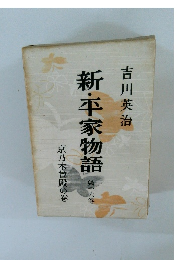 吉川英治
新・平家物語
京乃木曽殿の巻